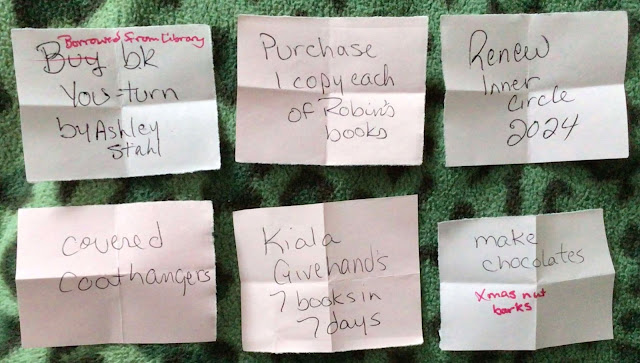 Borrowed from Library
Buy bk
You-turn
by Ashley
Stahl
Purchase
1 copy each
of Robin's
books
Renew
Inner
Circle
2024
covered
coathangers
Kiala
Givehand's
7 books in
7 days
make
chocolates
Xmas nut
barks